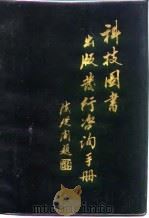 科技图书
出版发行咨询手册